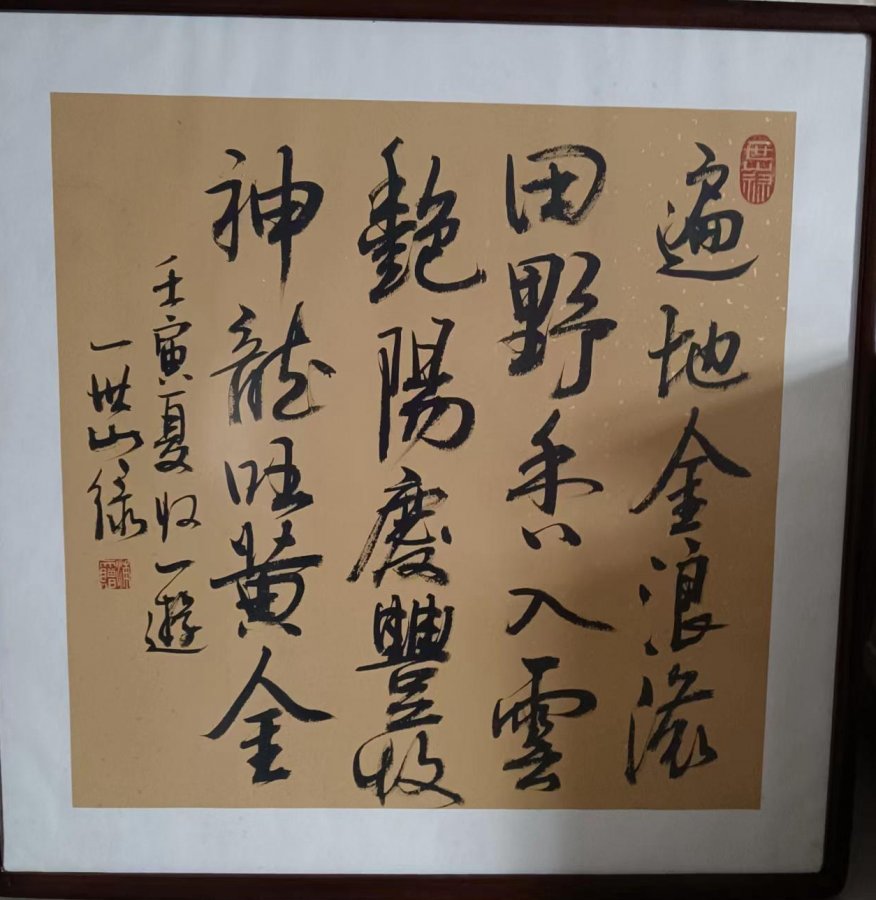 遍地金浪滚
田野香入雲
艶陽慶豐收
神龍旺黄金
壬寅夏收一遊
一世山緣